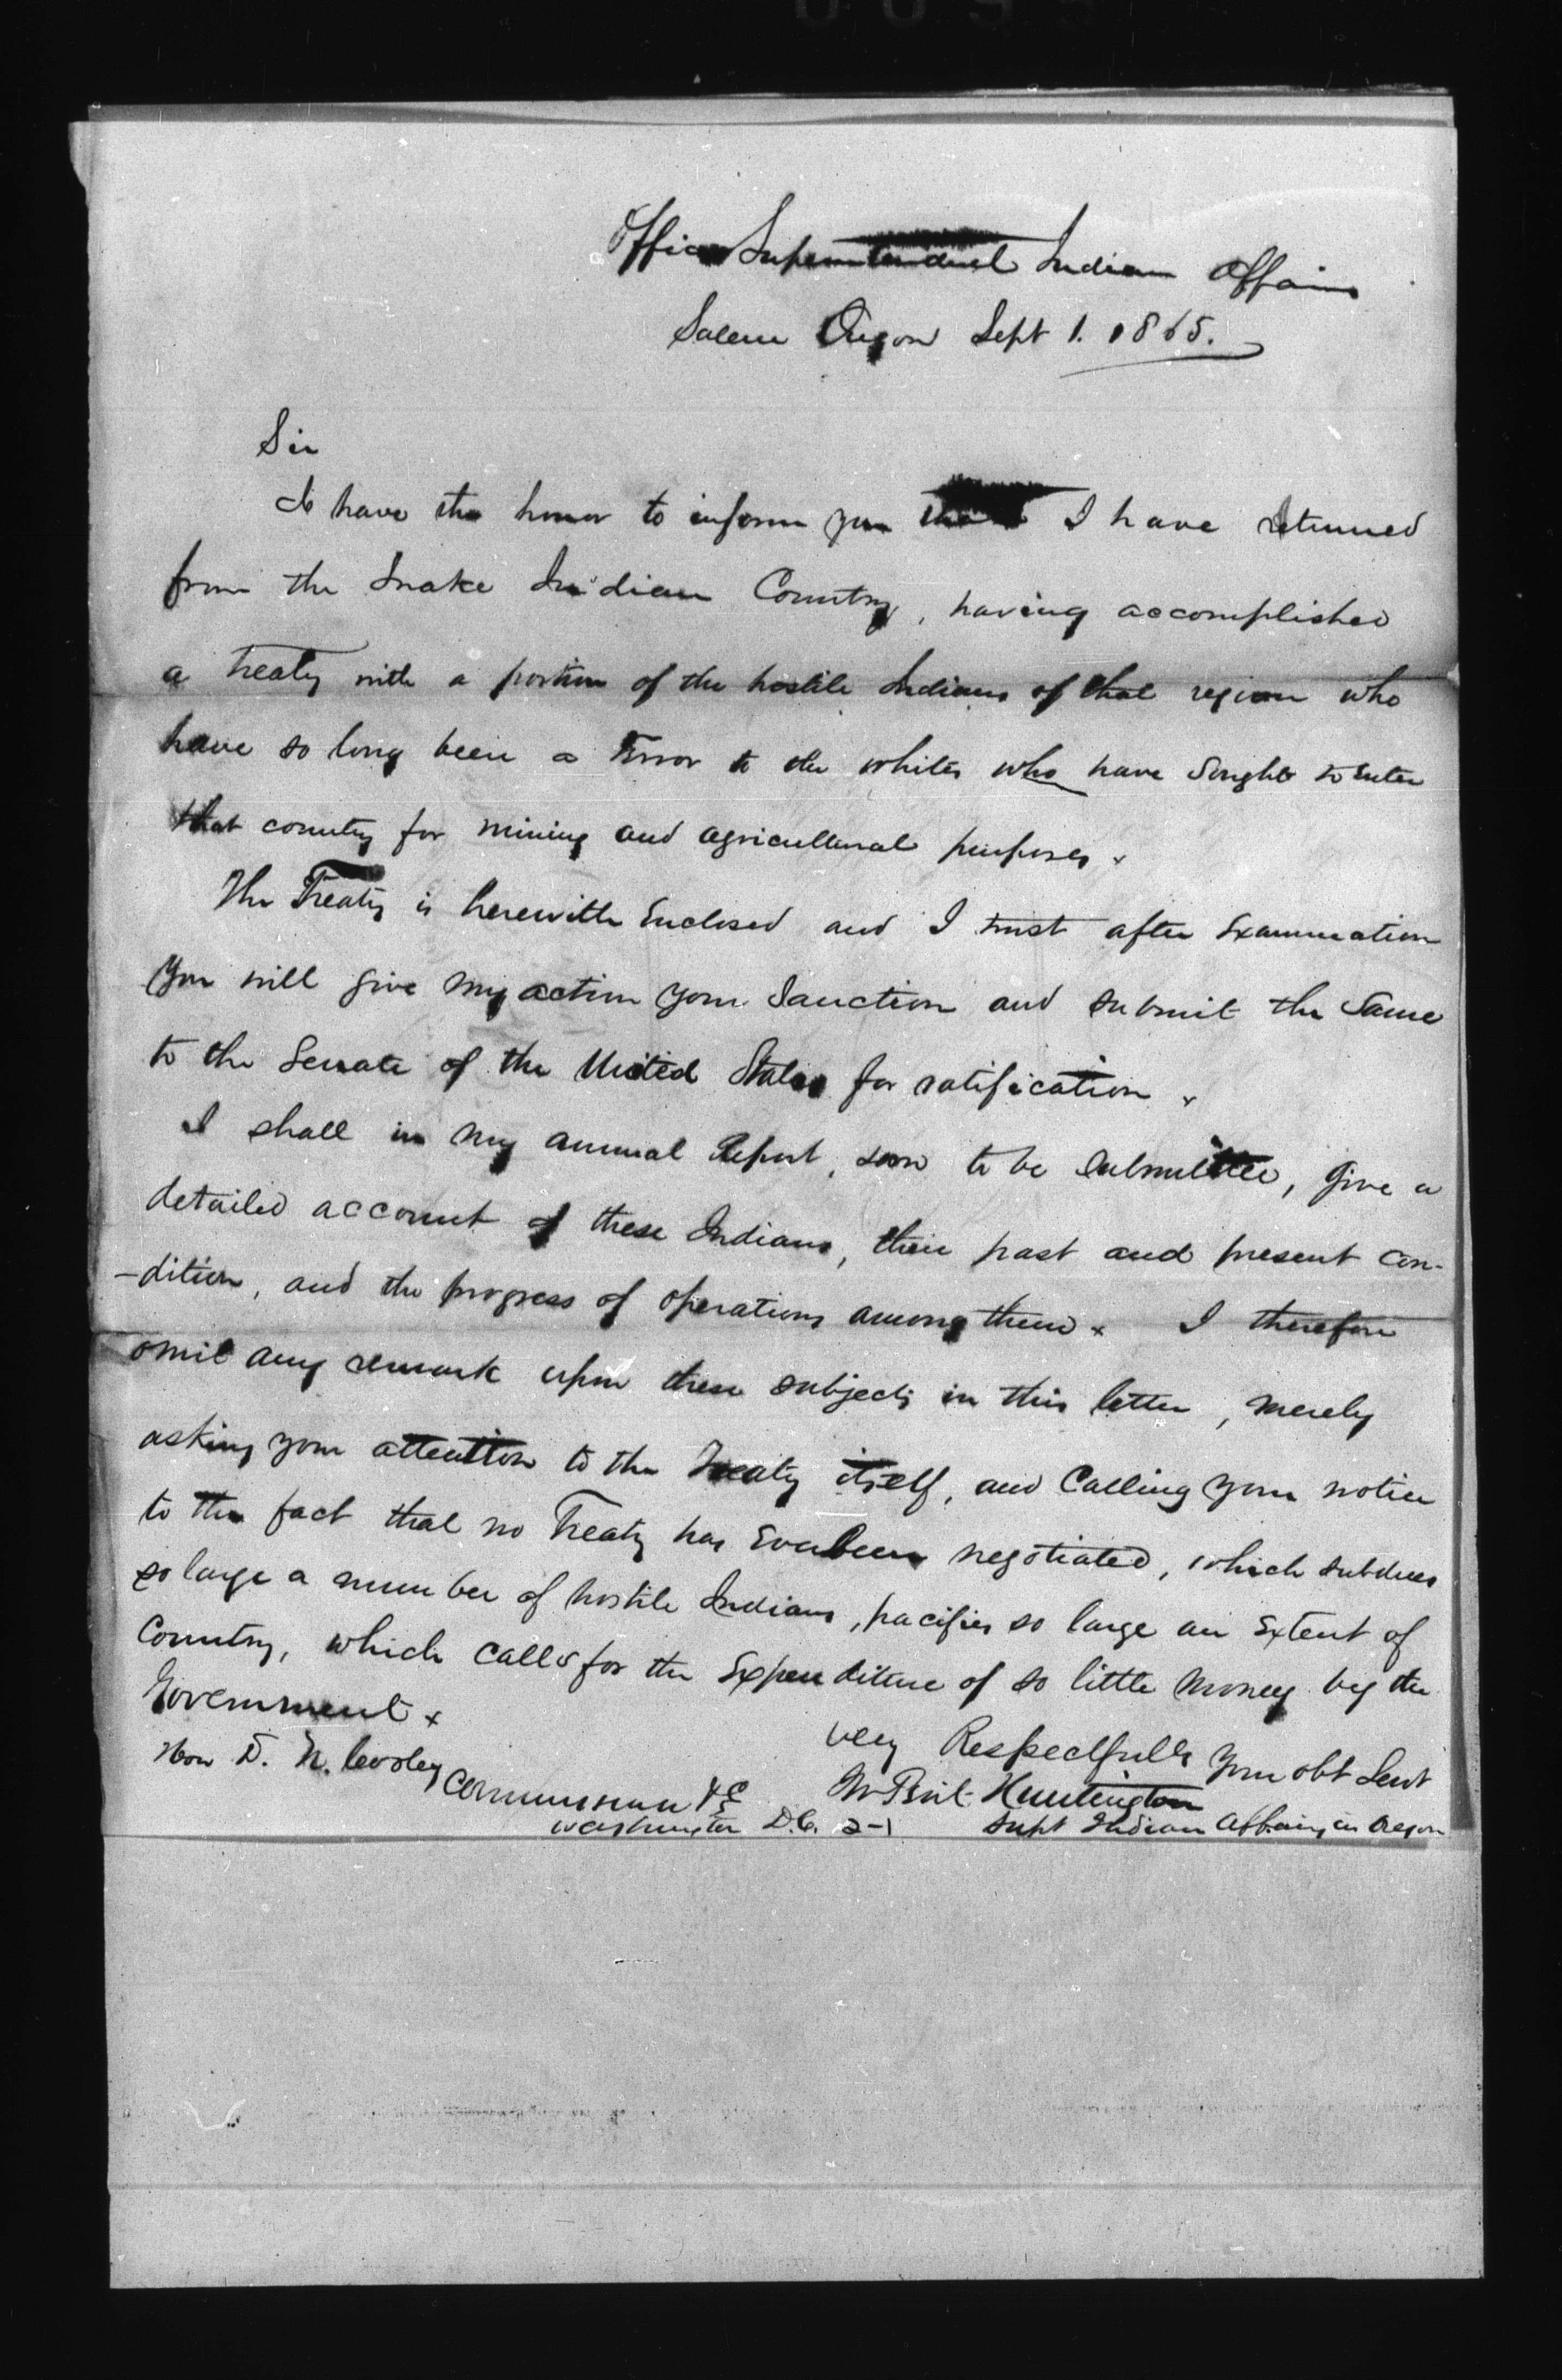 Office Superintendent Indian Affairs
Salem Oregon Sept 1. 1865.
Sir
I have the honor to inform you that I have returned
from the Snake Indian Country, having accomplished
a treaty with a portion of the hostile Indians of that region who
have so long been a Terror to the whites who have Sought to Enter
that country for mining and agricultural purposes x
The Treaty is herewith Enclosed and I trust after Examination
You will give my action your Sanction and submit the Same
to the Senate of the United States for ratification x
I shall in my annual Report, soon to be Submitted, give a
detailed account of these Indians, their past and present con-
-dition, and the progress of operations among them x I therefore
omit any remark upon these subjects in this letter, merely
asking your attention to the Treaty itself, and Calling your notice
to the fact that no Treaty has Ever been negotiated, which subdues
so large a number of hostile Indians, pacifies so large an Extent of
Country, which calls for the Expenditure of so little money by the
Government x
Very Respectfully Your obt Servt
Hon D. N. Cooley
J W Perit Huntington
Commissioner &c
Supt Indian Affairs in Oregon
Washington D.C. 2-1